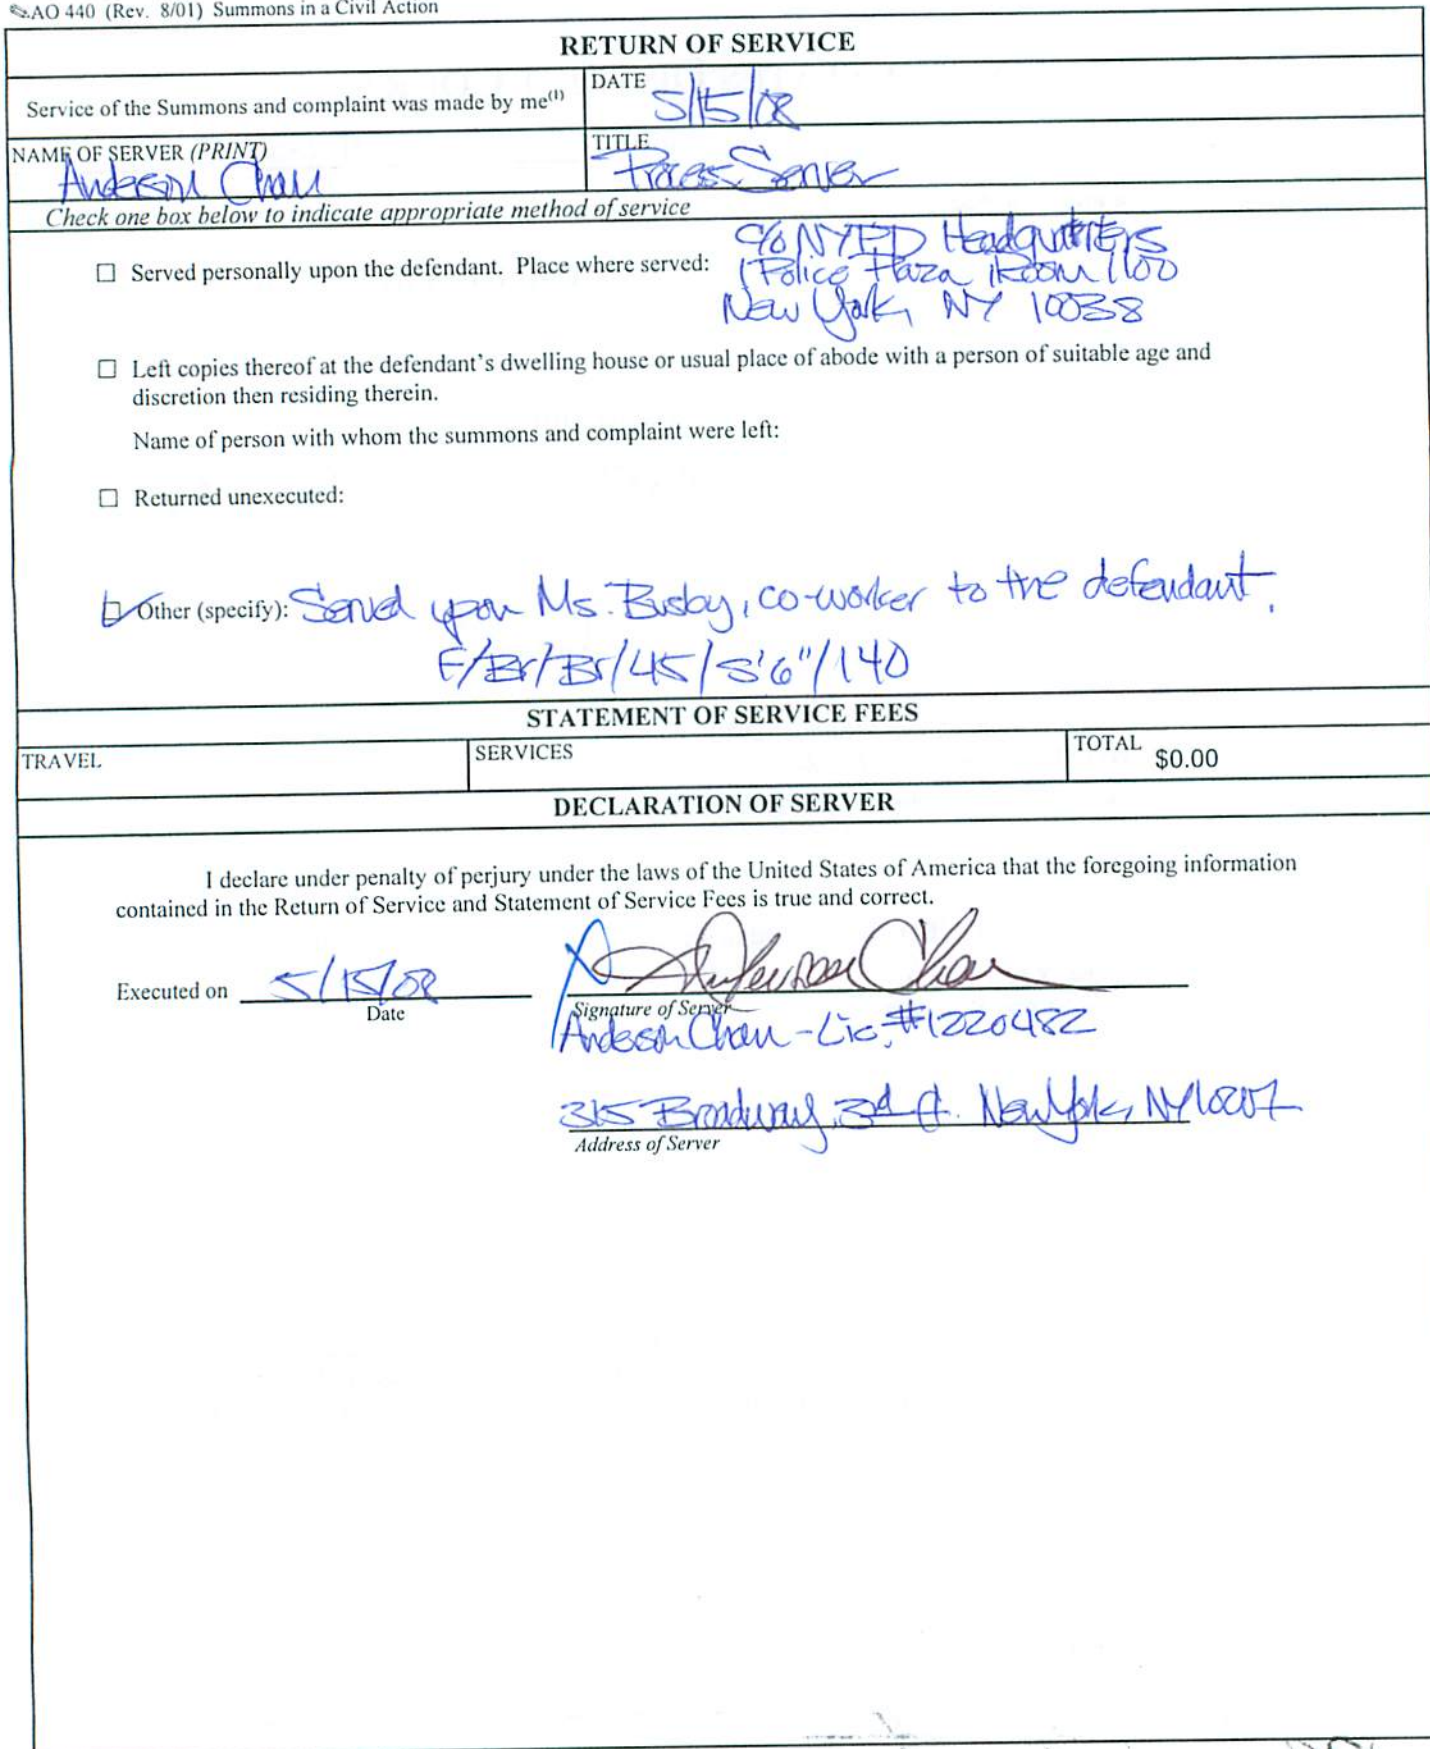 AO 440 (Rev. 8/01) Summons in a Civil Action
RETURN OF SERVICE
Service of the Summons and complaint was made by me(1)
DATE
5/15/08
NAME OF SERVER (PRINT)
Anderson Chan
TITLE
Process Server
Check one box below to indicate appropriate method of service
☐ Served personally upon the defendant. Place where served:
c/o NYPD Headquarters
1 Police Plaza, Room 1100
New York, NY 10038
☐ Left copies thereof at the defendant's dwelling house or usual place of abode with a person of suitable age and
discretion then residing therein.
Name of person with whom the summons and complaint were left:
☐ Returned unexecuted:
☑ Other (specify): Served upon Ms. Busby, co-worker to the defendant.
F/Br/Br/45/5'6"/140
STATEMENT OF SERVICE FEES
TRAVEL
SERVICES
TOTAL
$0.00
DECLARATION OF SERVER
I declare under penalty of perjury under the laws of the United States of America that the foregoing information
contained in the Return of Service and Statement of Service Fees is true and correct.
Executed on 5/15/08
Date
Anderson Chan
Signature of Server
Anderson Chan - Lic. #1220482
315 Broadway, 3rd fl. New York, NY 10007
Address of Server